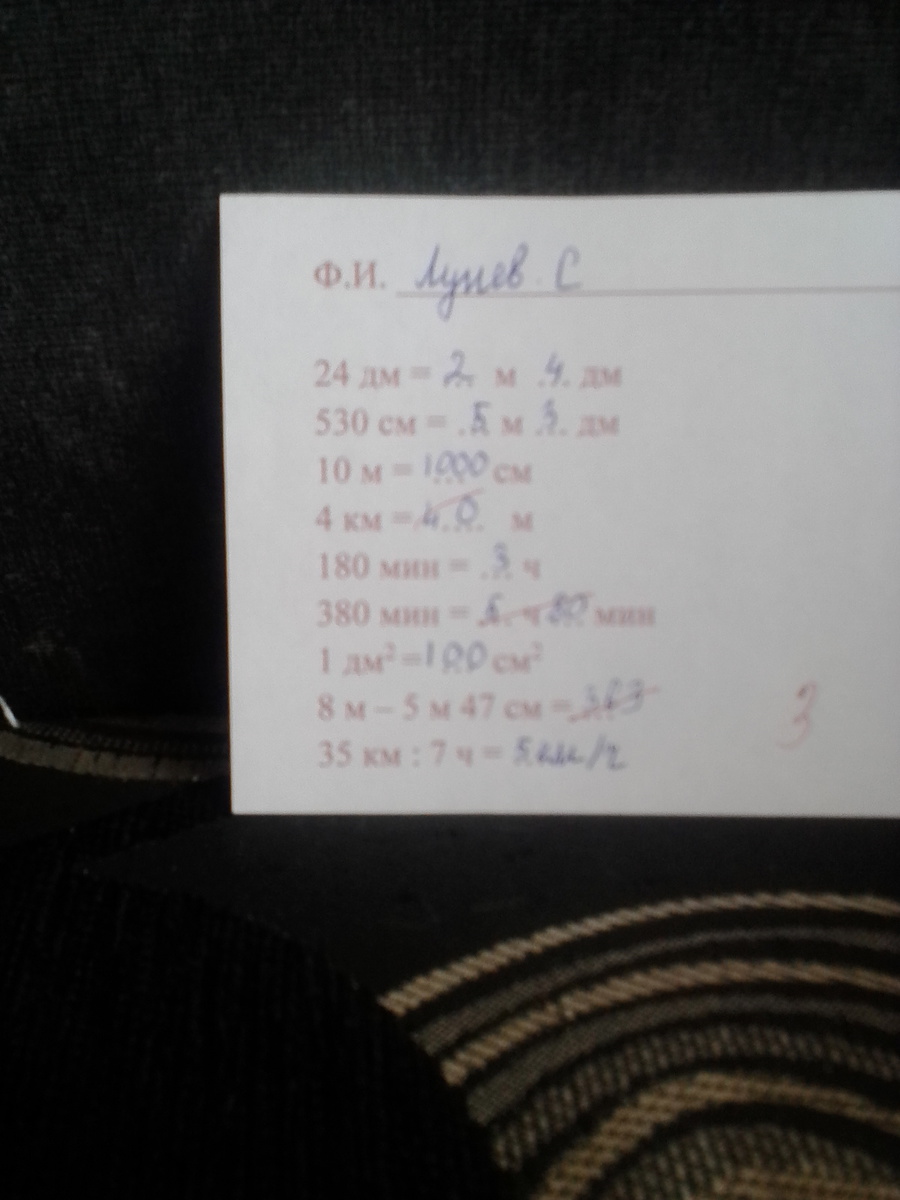 Ф.И. Лунев С
24 дм = 2 м 4 дм
530 см = 5 м 3 дм
10 м = 1000 см
4 км = 40 м
180 мин = 3 ч
380 мин = ч 80 мин
1 дм² = 100 см²
8 м – 5 м 47 см =
3
35 км : 7 ч = 5 км/ч